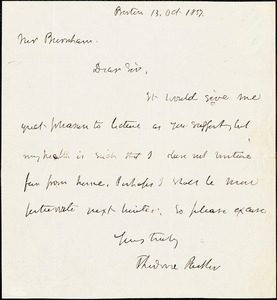 Boston 13. Oct. 1857.
Mr Burnham.
Dear Sir,
It would give me
great pleasure to lecture as you suggest, but
my health is such that I dare not venture
far from home. Perhaps I shall be more
fortunate next winter. So please excuse
Yours truly
Theodore Parker